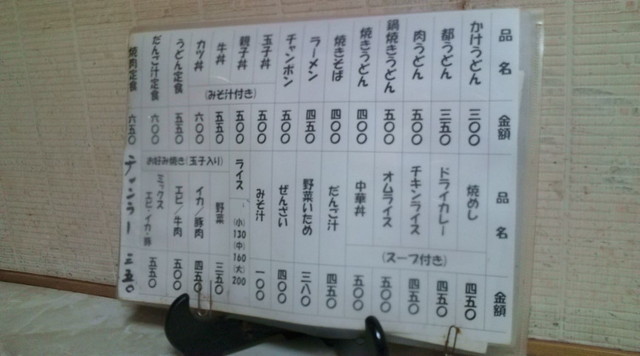 品名 金額
かけうどん 三〇〇
都うどん 三五〇
肉うどん 五〇〇
鍋焼きうどん 五〇〇
焼きうどん 四〇〇
焼きそば 四〇〇
ラーメン 四五〇
チャンポン 五〇〇
玉子丼 五〇〇
親子丼 五〇〇
牛丼 五五〇
カツ丼 六〇〇
(みそ汁付き)
うどん定食 五五〇
だんご汁定食 六〇〇
焼肉定食 六五〇
品名 金額
焼めし 四五〇
ドライカレー 四五〇
チキンライス 四五〇
オムライス 五〇〇
中華丼 五〇〇
(スープ付き)
だんご汁 四五〇
野菜いため 三八〇
ぜんざい 四〇〇
みそ汁 一〇〇
ライス (小)130(中)160(大)200
お好み焼き(玉子入り)
野菜 三五〇
イカ/豚肉 四五〇
エビ/牛肉 五〇〇
ミックス エビ・イカ・豚 五五〇
チャンラー 三五〇